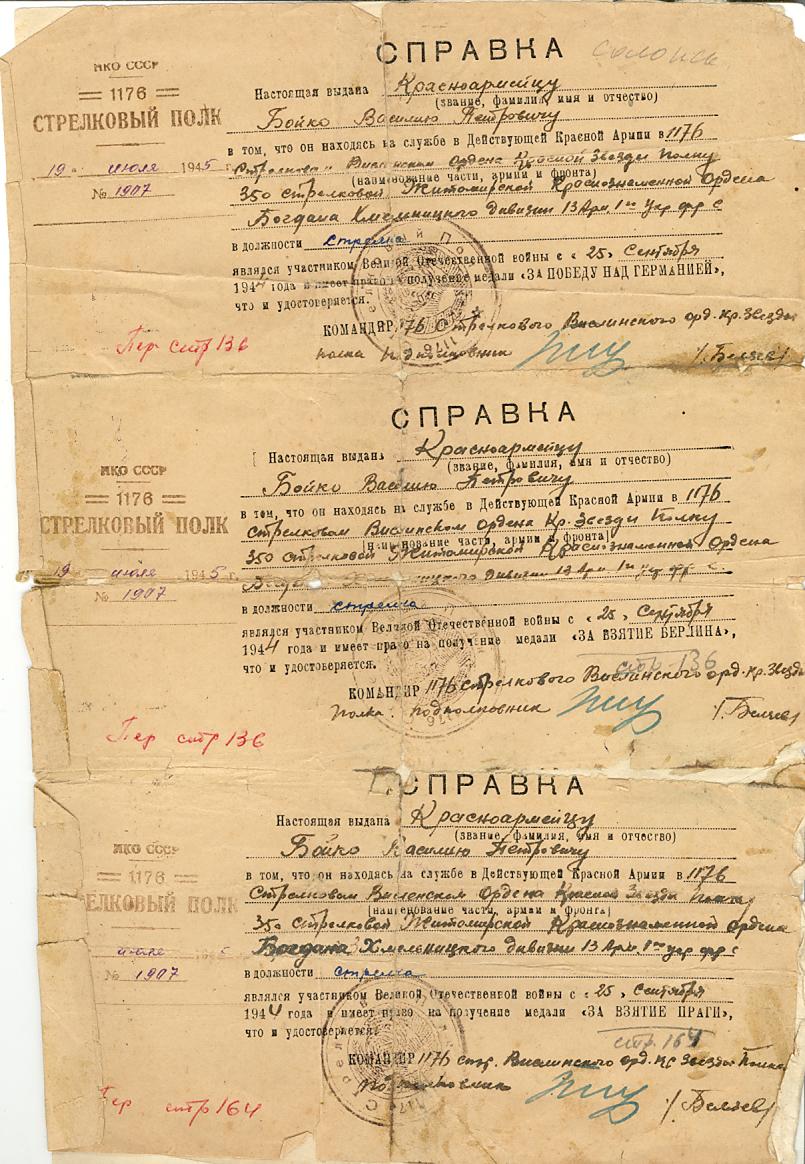 СПРАВКА
НКО СССР
1176
СТРЕЛКОВЫЙ ПОЛК
19 июля 1945 г.
№ 1907
Настоящая выдана Красноармейцу
(звание, фамилия, имя и отчество)
Бойко Василию Петровичу
в том, что он находясь на службе в Действующей Красной Армии в 1176
Стрелковом Вислинском ордена Красной Звезды Полку
(наименование части, армии и фронта)
350 стрелковой Житомирской Краснознаменной Ордена
Богдана Хмельницкого Дивизии 13 Арм. 1го Укр фр с
в должности стрелка
являлся участником Великой Отечественной войны с «25» Сентября
1944 года и имеет право на получение медали «ЗА ПОБЕДУ НАД ГЕРМАНИЕЙ»,
что и удостоверяется.
КОМАНДИР 1176 Стрелкового Вислинского орд. Кр. Звезды
полка подполковник /Беляев/
Пер стр 136
СПРАВКА
НКО СССР
1176
СТРЕЛКОВЫЙ ПОЛК
19 июля 1945 г.
№ 1907
Настоящая выдана Красноармейцу
(звание, фамилия, имя и отчество)
Бойко Василию Петровичу
в том, что он находясь на службе в Действующей Красной Армии в 1176
стрелковом Вислинском ордена Кр. Звезды Полку
(наименование части, армии и фронта)
350 стрелковой Житомирской Краснознаменной Ордена
Дивизии 13 Арм. 1го Укр фр. с
в должности стрелка
являлся участником Великой Отечественной войны с «25» Сентября
1944 года и имеет право на получение медали «ЗА ВЗЯТИЕ БЕРЛИНА»,
что и удостоверяется.
стр-136
КОМАНДИР 1176 стрелкового Вислинского орд. Кр. Звезды
Полка подполковник /Беляев/
Пер стр 136
СПРАВКА
НКО СССР
1176
СТРЕЛКОВЫЙ ПОЛК
июля
№ 1907
Настоящая выдана Красноармейцу
(звание, фамилия, имя и отчество)
Бойко Василию Петровичу
в том, что он находясь на службе в Действующей Красной Армии в 1176
Стрелковом Висленском Ордена Красной Звезды Полку
(наименование части, армии и фронта)
350 Стрелковой Житомирской Краснознаменной Ордена
Богдана Хмельницкого дивизии 13 Арм. 1го Укр фр с
в должности стрелка
являлся участником Великой Отечественной войны с «25» Сентября
1944 года и имеет право на получение медали «ЗА ВЗЯТИЕ ПРАГИ»,
что и удостоверяется.
стр. 164
КОМАНДИР 1176 стр. Вислинского орд. Кр Звезды Полка
подполковник /Беляев/
Пер стр 164